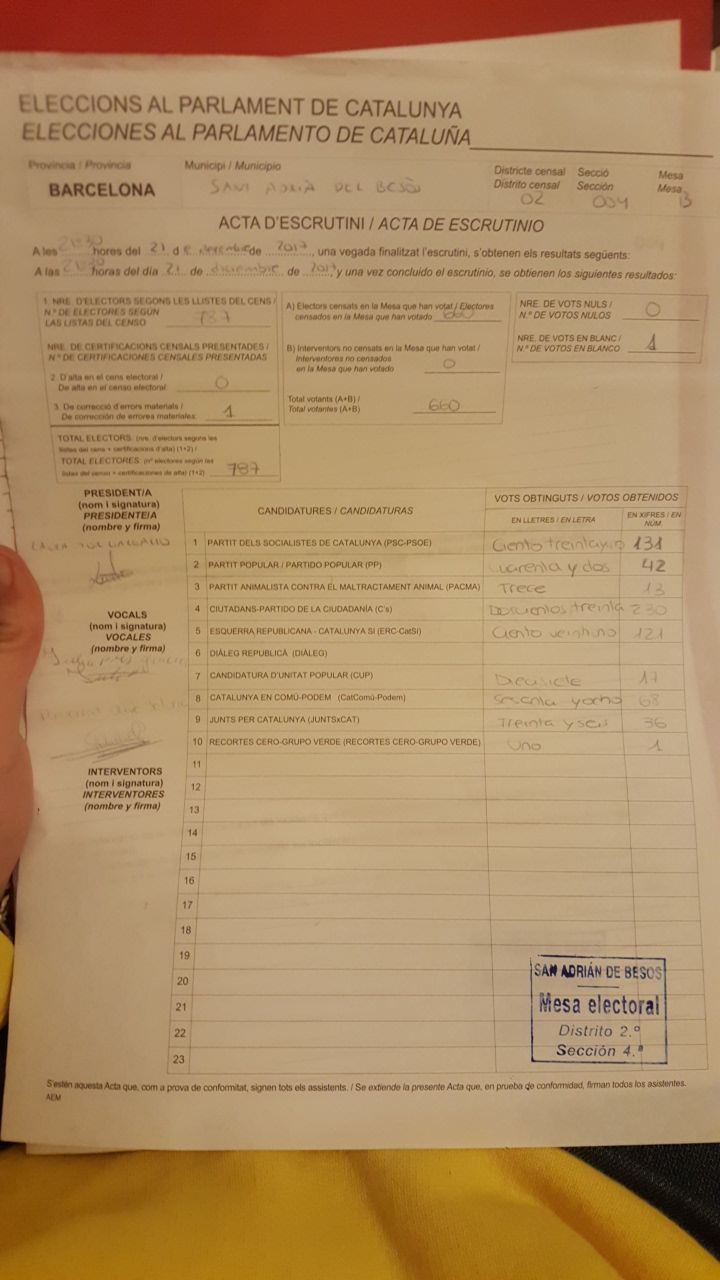 ELECCIONS AL PARLAMENT DE CATALUNYA
ELECCIONES AL PARLAMENTO DE CATALUÑA
Província / Provincia
Municipi / Municipio
Districte censal Secció Mesa
Distrito censal Sección Mesa
BARCELONA SANT ADRIÀ DEL BESÒS 02 004 B
ACTA D'ESCRUTINI / ACTA DE ESCRUTINIO
A les 21:30 hores del 21 de de 2017, una vegada finalitzat l'escrutini, s'obtenen els resultats següents:
A las 21:30 horas del día 21 de diciembre de 2017, y una vez concluido el escrutinio, se obtienen los siguientes resultados:
1. NRE. D'ELECTORS SEGONS LES LLISTES DEL CENS /
N.º DE ELECTORES SEGÚN
LAS LISTAS DEL CENSO 787
NRE. DE CERTIFICACIONS CENSALS PRESENTADES /
N.º DE CERTIFICACIONES CENSALES PRESENTADAS
2. D'alta en el cens electoral /
De alta en el censo electoral: 0
3. De correcció d'errors materials /
De corrección de errores materiales: 1
TOTAL ELECTORS (nre. d'electors segons les
llistes del cens + certificacions d'alta) (1+2) /
TOTAL ELECTORES (nº electores según las
listas del censo + certificaciones de alta) (1+2) 787
A) Electors censats en la Mesa que han votat / Electores
censados en la Mesa que han votado 660
B) Interventors no censats en la Mesa que han votat /
Interventores no censados
en la Mesa que han votado 0
Total votants (A+B) /
Total votantes (A+B) 660
NRE. DE VOTS NULS /
N.º DE VOTOS NULOS 0
NRE. DE VOTS EN BLANC /
N.º DE VOTOS EN BLANCO 1
PRESIDENT/A
(nom i signatura)
PRESIDENTE/A
(nombre y firma)
VOCALS
(nom i signatura)
VOCALES
(nombre y firma)
INTERVENTORS
(nom i signatura)
INTERVENTORES
(nombre y firma)
CANDIDATURES / CANDIDATURAS
VOTS OBTINGUTS / VOTOS OBTENIDOS
EN LLETRES / EN LETRA
EN XIFRES / EN NÚM.
1 PARTIT DELS SOCIALISTES DE CATALUNYA (PSC-PSOE) Ciento treinta y uno 131
2 PARTIT POPULAR / PARTIDO POPULAR (PP) Cuarenta y dos 42
3 PARTIT ANIMALISTA CONTRA EL MALTRACTAMENT ANIMAL (PACMA) Trece 13
4 CIUTADANS-PARTIDO DE LA CIUDADANÍA (C's) Doscientos treinta 230
5 ESQUERRA REPUBLICANA - CATALUNYA SÍ (ERC-CatSí) Ciento veintiuno 121
6 DIÀLEG REPUBLICÀ (DIÀLEG)
7 CANDIDATURA D'UNITAT POPULAR (CUP) Diecisiete 17
8 CATALUNYA EN COMÚ-PODEM (CatComú-Podem) Sesenta y ocho 68
9 JUNTS PER CATALUNYA (JUNTSxCAT) Treinta y seis 36
10 RECORTES CERO-GRUPO VERDE (RECORTES CERO-GRUPO VERDE) Uno 1
11
12
13
14
15
16
17
18
19
20
21
22
23
SAN ADRIÁN DE BESOS
Mesa electoral
Distrito 2.º
Sección 4.ª
S'estén aquesta Acta que, com a prova de conformitat, signen tots els assistents. / Se extiende la presente Acta que, en prueba de conformidad, firman todos los asistentes.
AEM